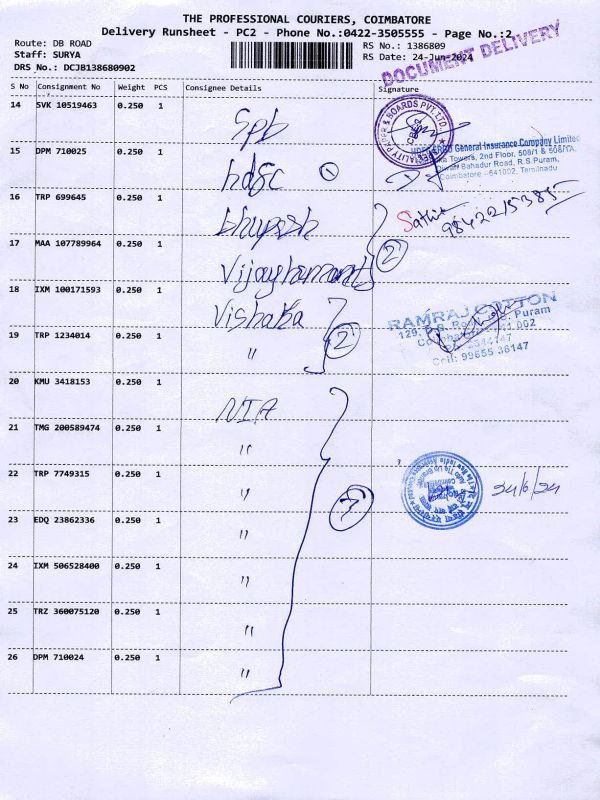 THE PROFESSIONAL COURIERS, COIMBATORE
Delivery Runsheet - PC2 - Phone No.:0422-3505555 - Page No.:2
Route: DB ROAD
Staff: SURYA
DRS No.: DCJB138680902
RS No.: 1386809
RS Date: 24-Jun-2024
DOCUMENT DELIVERY
S No Consignment No Weight PCS Consignee Details Signature
14 SVK 10519463 0.250 1 Spb
15 DPM 710025 0.250 1 hdfc 1
General Insurance Company Limited
Towers, 2nd Floor, 509/1 & 508/1A,
Diwan Bahadur Road, R.S.Puram,
Coimbatore -641002, Tamilnadu
16 TRP 699645 0.250 1 bhupesh
Sathia 9842215385
17 MAA 107789964 0.250 1 2
18 IXM 100171593 0.250 1 Vishaka
RAMRAJ COTTON
19 TRP 1234014 0.250 1 " 2
Cell: 99655 36147
20 KMU 3418153 0.250 1 NIA
21 TMG 200589474 0.250 1 "
22 TRP 7749315 0.250 1 " 7 24/6/24
23 EDQ 23862336 0.250 1 "
24 IXM 506528400 0.250 1 "
25 TRZ 360075120 0.250 1 "
26 DPM 710024 0.250 1 "